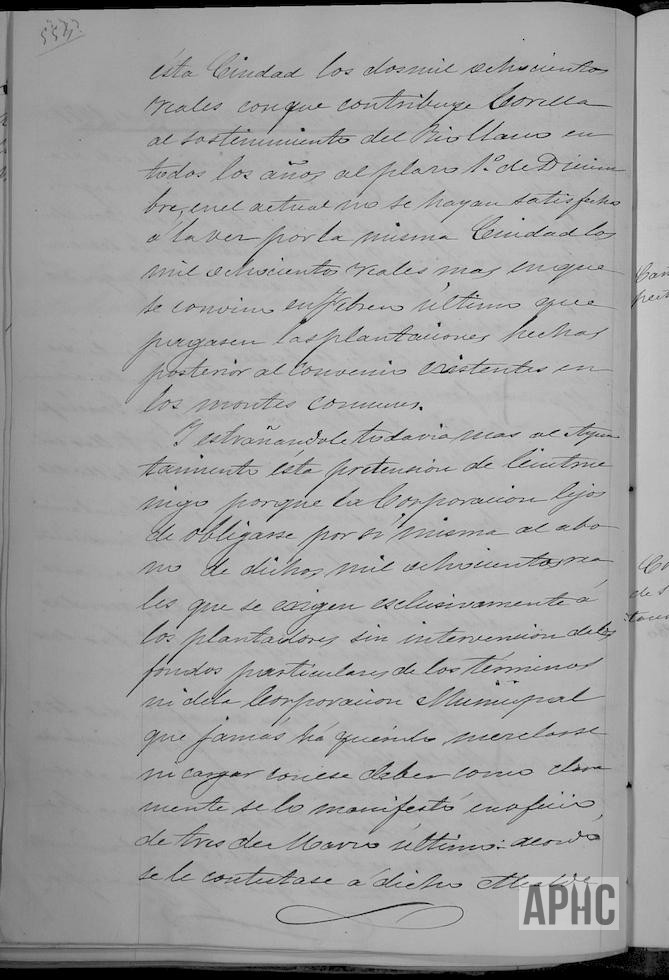 ésta Ciudad los dosmil ochocientos
reales conque contribuye Corella
al sostenimiento del Rio Llano en
todos los años al plazo 1.º de Diciem
bre, en el actual no se hayan satisfecho
á la vez por la misma Ciudad los
mil ochocientos reales mas en que
se convino en Febrero último que
pagasen las plantaciones hechas
posterior al convenio existentes en
los montes comunes.
I estrañandole todavia mas al Ayun
tamiento ésta pretension de Cintrue
nigo porque la Corporacion lejos
de obligarse por si misma al abo
no de dichos mil ochocientos rea
les que se exigen esclusivamente á
los plantadores sin intervension de los
fondos particulares de los términos
ni de la Corporacion Municipal
que jamás há querido mezclarse
ni cargar con ese deber como clara
mente se lo manifestó en oficio
de tres de Marzo último: acordó
se le contestase á dicho Alcalde
APHC